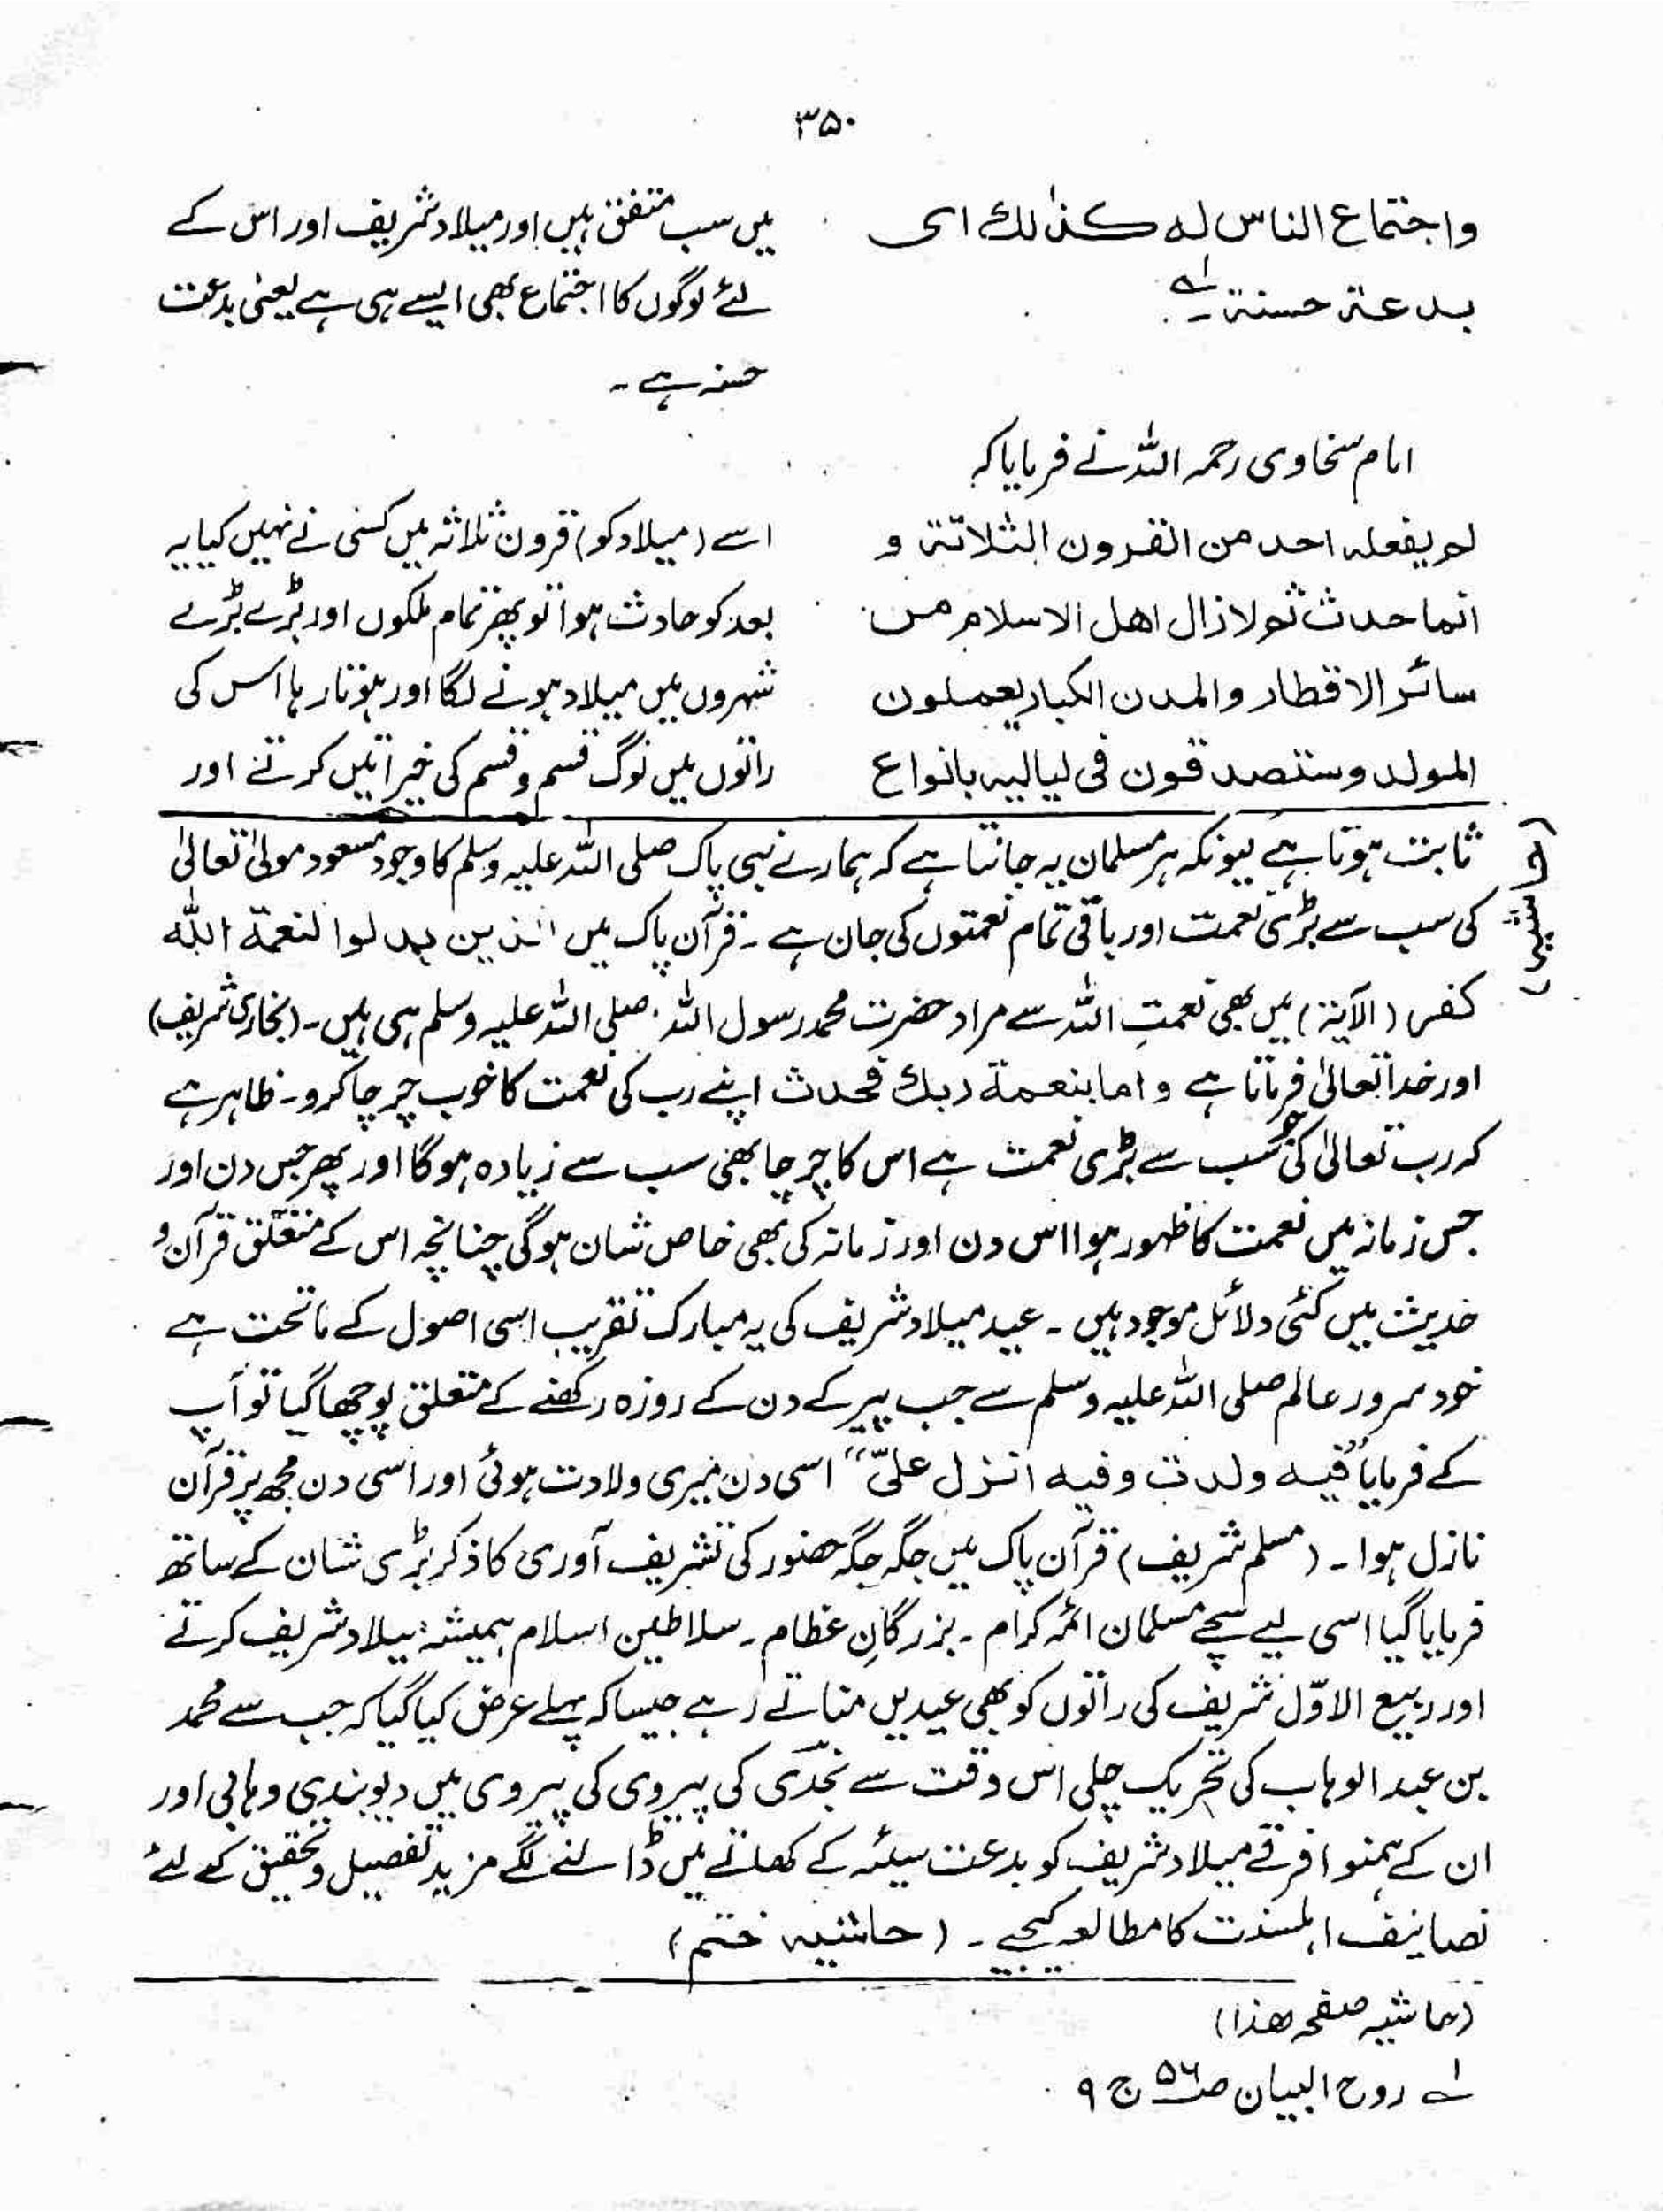 ۳۵۰
واجتماع الناس لہ کذٰلك ای
بدعۃ حسنۃ۔ لہ
میں سب متفق ہیں اور میلاد شریف اور اس کے
لئے لوگوں کا اجتماع بھی ایسے ہی ہے یعنی بدعت
حسنہ ہے۔
امام سخاوی رحمہ اللہ نے فرمایا کہ
لم یفعلہ احد من القرون الثلاثۃ و
انما حدث ثم لازال اهل الاسلام من
سائر الاقطار والمدن الکبار یعملون
المولد وستصدقون فی لیالیہ بانواع
اسے (میلاد کو) قرون ثلاثہ میں کسی نے نہیں کیا یہ
بعد کو حادث ہوا تو پھر تمام ملکوں اور بڑے بڑے
شہروں میں میلاد ہونے لگا اور ہوتا رہا اس کی
راتوں میں لوگ قسم و قسم کی خیراتیں کرتے اور
ثابت ہوتا ہے کیونکہ ہر مسلمان یہ جانتا ہے کہ ہمارے نبی پاک صلی اللہ علیہ وسلم کا وجود مسعود مولیٰ تعالیٰ
کی سب سے بڑی نعمت اور باقی تمام نعمتوں کی جان ہے۔ قرآن پاک میں الذین بدلوا لنعمة اللہ
کفر (الآیۃ) میں بھی نعمتِ اللہ سے مراد حضرت محمد رسول اللہ صلی اللہ علیہ وسلم ہی ہیں۔ (بخاری شریف)
اور خدا تعالیٰ فرماتا ہے واما بنعمة ربك فحدث اپنے رب کی نعمت کا خوب چرچا کرو۔ ظاہر ہے
کہ رب تعالیٰ کی جو سب سے بڑی نعمت ہے اس کا چرچا بھی سب سے زیادہ ہو گا اور پھر جس دن اور
جس زمانہ میں نعمت کا ظہور ہوا اس دن اور زمانہ کی بھی خاص شان ہو گی چنانچہ اس کے متعلق قرآن و
حدیث میں کئی دلائل موجود ہیں۔ عید میلاد شریف کی یہ مبارک تقریب اسی اصول کے ماتحت ہے
خود سرور عالم صلی اللہ علیہ وسلم سے جب پیر کے دن کے روزہ رکھنے کے متعلق پوچھا گیا تو آپ
کے فرمایا "فیه ولدت وفیه انزل علیّ" اسی دن میری ولادت ہوئی اور اسی دن مجھ پر قرآن
نازل ہوا۔ (مسلم شریف) قرآن پاک میں جگہ جگہ حضور کی تشریف آوری کا ذکر بڑی شان کے ساتھ
فرمایا گیا اسی لیے سچے مسلمان ائمہ کرام۔ بزرگانِ عظام۔ سلاطین اسلام ہمیشہ میلاد شریف کرتے
اور ربیع الاوّل شریف کی راتوں کو بھی عیدیں مناتے رہے جیسا کہ پہلے عرض کیا گیا کہ جب سے محمد
بن عبد الوہاب کی تحریک چلی اس وقت سے نجدی کی پیروی کی پیروی میں دیوبندی وہابی اور
ان کے ہمنوا فرقے میلاد شریف کو بدعت سیئہ کے کھاتے میں ڈالنے لگے مزید تفصیل و تحقیق کے لئے
تصانیف اہلسنت کا مطالعہ کیجیے۔ (حاشیہ ختم)
(حاشیہ صفحہ ھذا)
لہ روح البیان ص۵۶ ج ۹